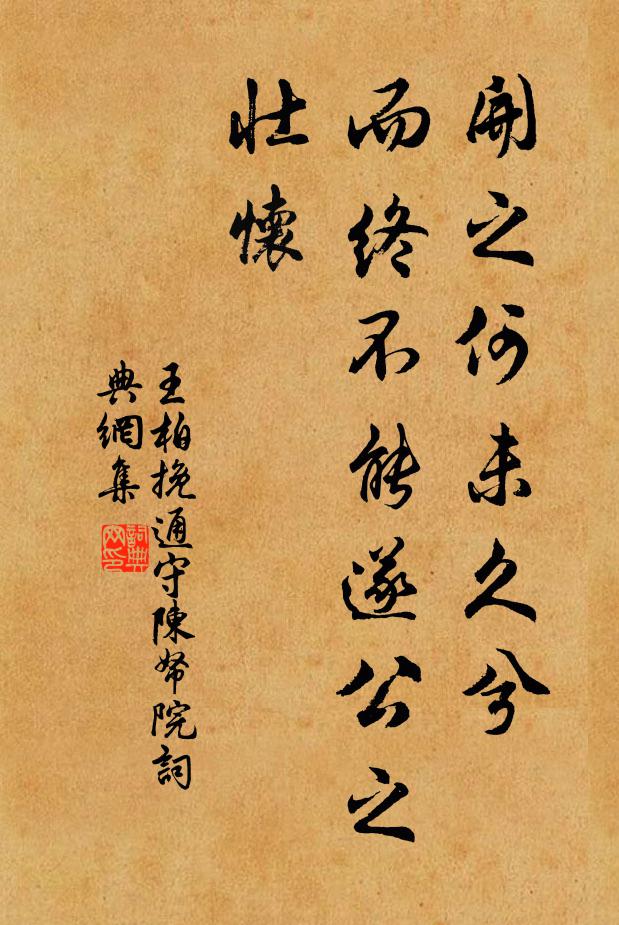 開之何未久兮
而終不能遂公之
壯懷
王柏挽通守陳帑院詞
典網集
詞典網印